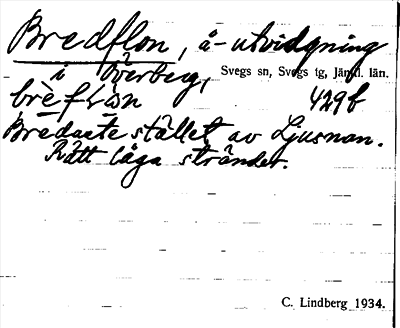 Bredflon, å-utvidgning
i Överberg, Svegs sn, Svegs tg, Jämtl. län.
429b
Bredaste stället av Ljusnan.
Rätt låga stränder.
C. Lindberg 1934.